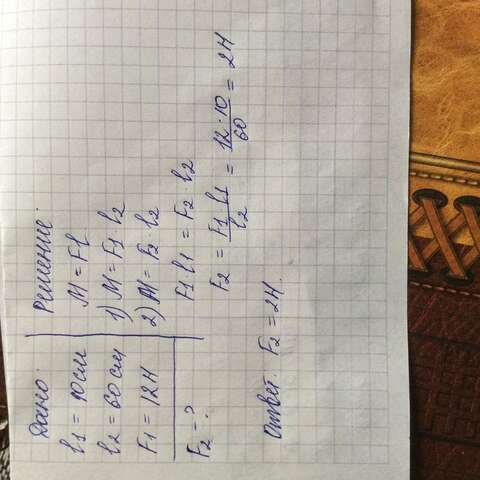 Дано:
l1 = 10 см
l2 = 60 см
F1 = 12Н
F2 - ?
Решение:
M = Fl
1) M = F1 · l2
2) M = F2 · l2
F1 l1 = F2 · l2
F2 = F1 l1 / l2 = 12 · 10 / 60 = 2Н
Ответ. F2 = 2Н.